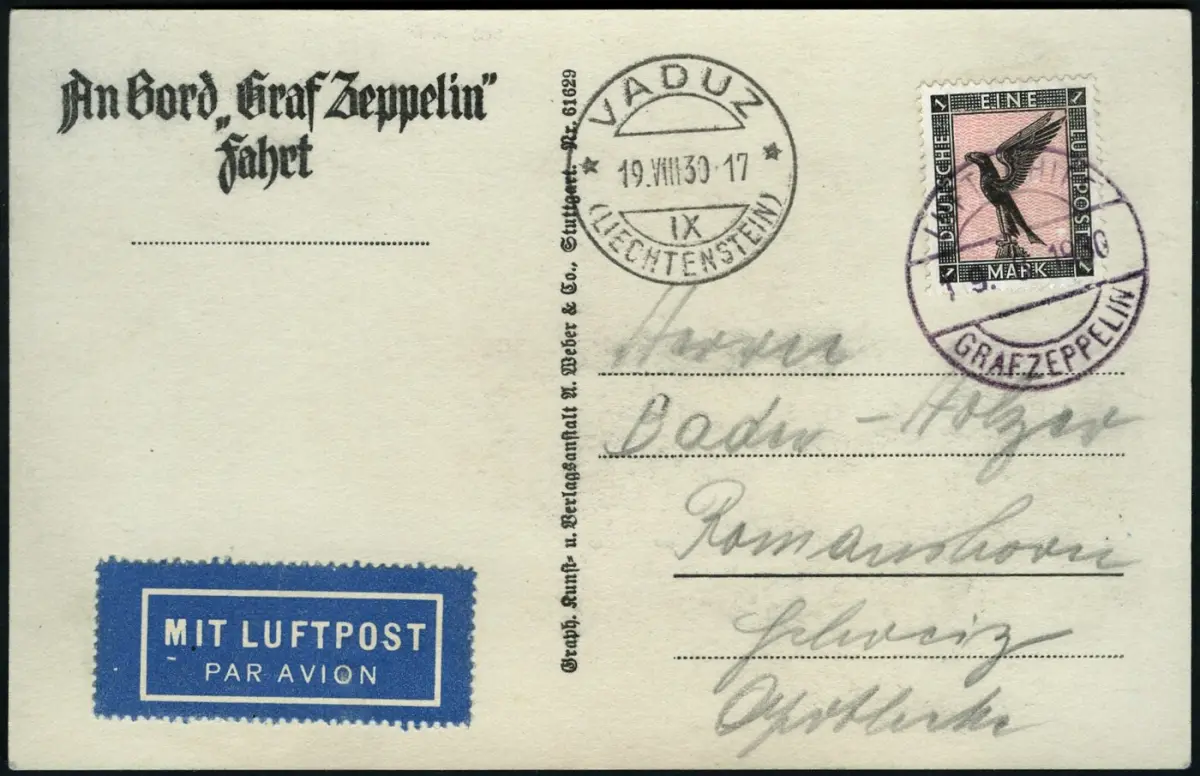 An Bord „Graf Zeppelin"
Fahrt
MIT LUFTPOST
PAR AVION
Graph. Kunst- u. Verlagsanstalt A. Weber & Co., Stuttgart. Nr. 61629
VADUZ
19.VIII 30-17
IX
(LIECHTENSTEIN)
1 EINE 1
DEUTSCHE
LUFTPOST
1 MARK 1
GRAF ZEPPELIN
Herrn
Bader - Holzer
Romanshorn
Schweiz
Apotheke